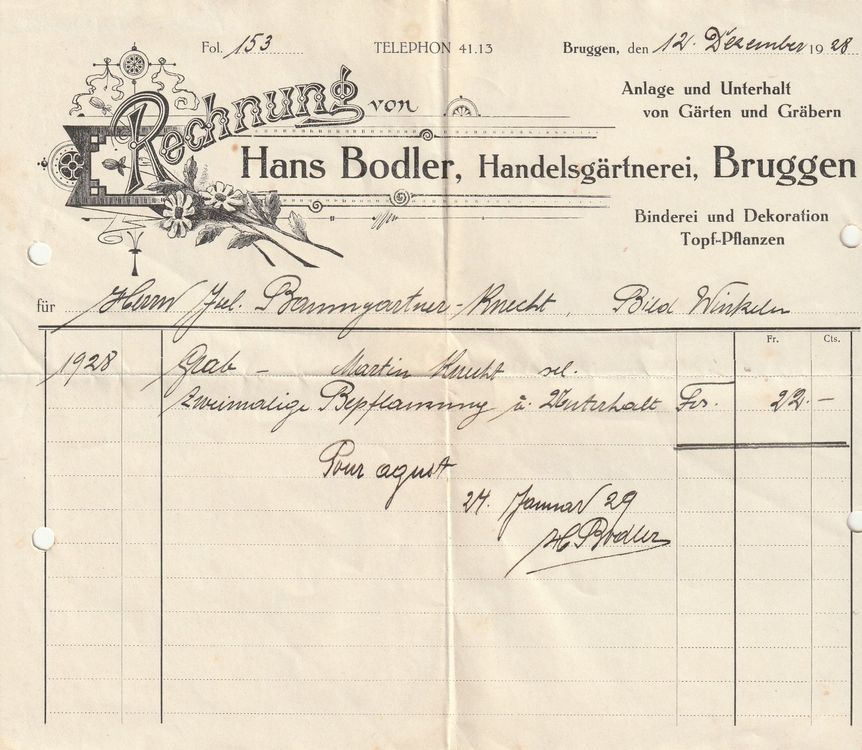 Fol. 153 TELEPHON 41.13 Bruggen, den 12. Dezember 1928.
Rechnung von
Anlage und Unterhalt
von Gärten und Gräbern
Hans Bodler, Handelsgärtnerei, Bruggen
Binderei und Dekoration
Topf-Pflanzen
für Herrn Jul. Baumgartner-Knecht, Bild Winkeln
Fr. Cts.
1928 Grab – Martin Knecht sel.
Zweimalige Bepflanzung u. Unterhalt Frs. 22.–
Pour aquit
24. Januar 29
H Bodler